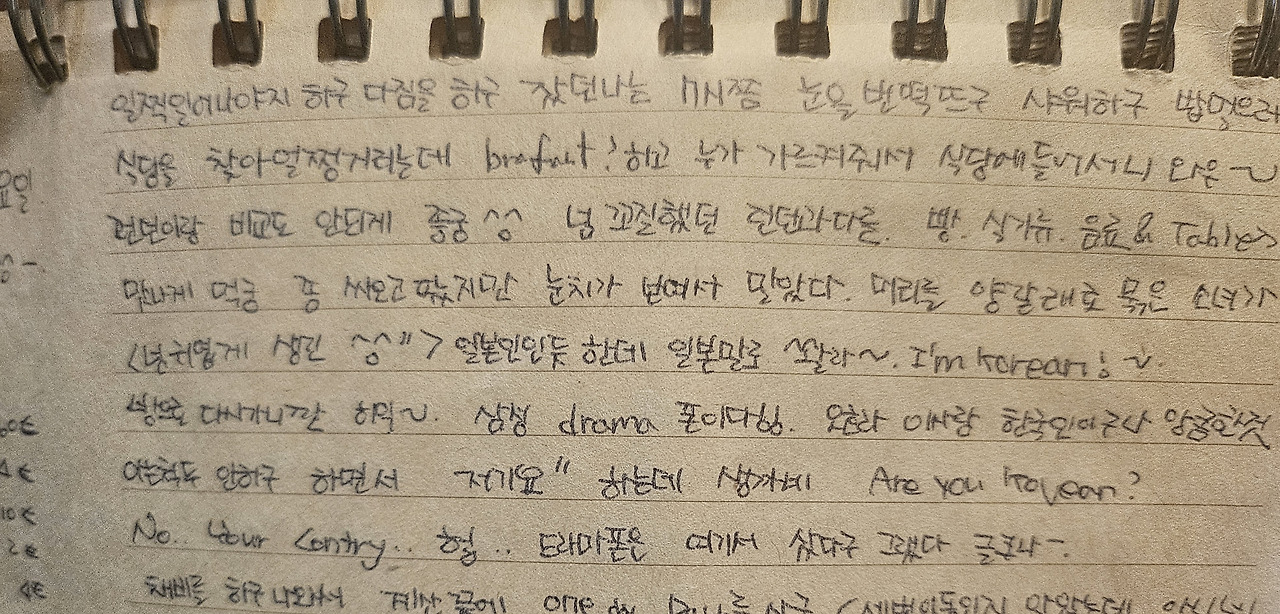 일찍일어나야지 하구 다짐을 하구 잤던나는 7시쯤 눈을 번떡뜨구 샤워하구 밥먹으러
식당을 찾아얼쩡거리는데 brefast! 하고 누가 가르켜줘서 식당에들어서니 와우~
요일.
런던이랑 비교도 안되게 좋궁^^ 넘 꼬질했던 런던과다름. 빵. 식기류. 음료 & Table
맛나게 먹궁 좀 싸오고팠지만 눈치가 보여서 말았다. 머리를 양갈래로 묶은 소녀가
<넘귀엽게 생긴 ^^"> 일본인인듯 한데 일본말로 쏼라~. I'm Korean! ~.
방으로 다시가니깐 허억~. 삼성 drama 폰이다힝. 오호라 이사람 한국인이구나 앙큼한것
아는척도 안하구 하면서 저기요" 하는데 쌩까네 Are you Korean?
4€
No.. your contry.. 헐.. 드래마폰은 여기서 샀다구 그랬다 글쿠나~.
10€
2€
채비를 하구 나와서 계산 끝에 one day
4€